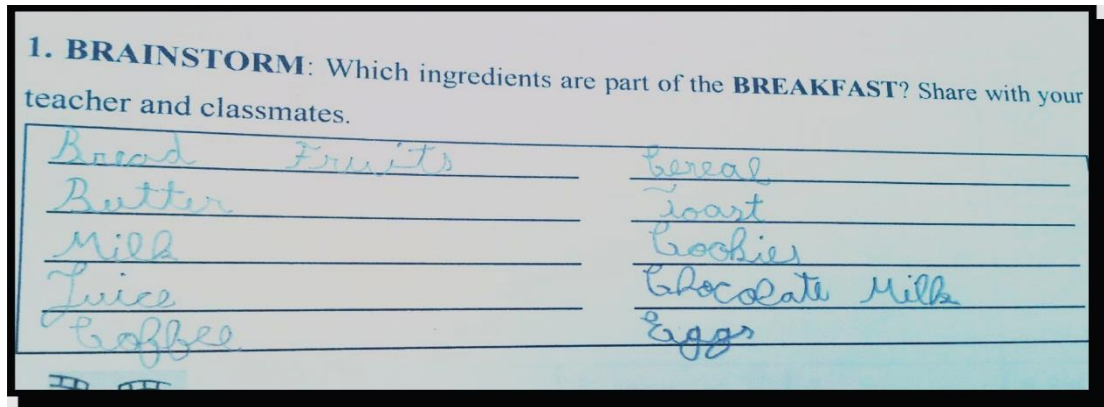 1. BRAINSTORM: Which ingredients are part of the BREAKFAST? Share with your
teacher and classmates.
Bread Fruits
Butter
Milk
Juice
Coffee
Cereal
Toast
Cookies
Chocolate Milk
Eggs